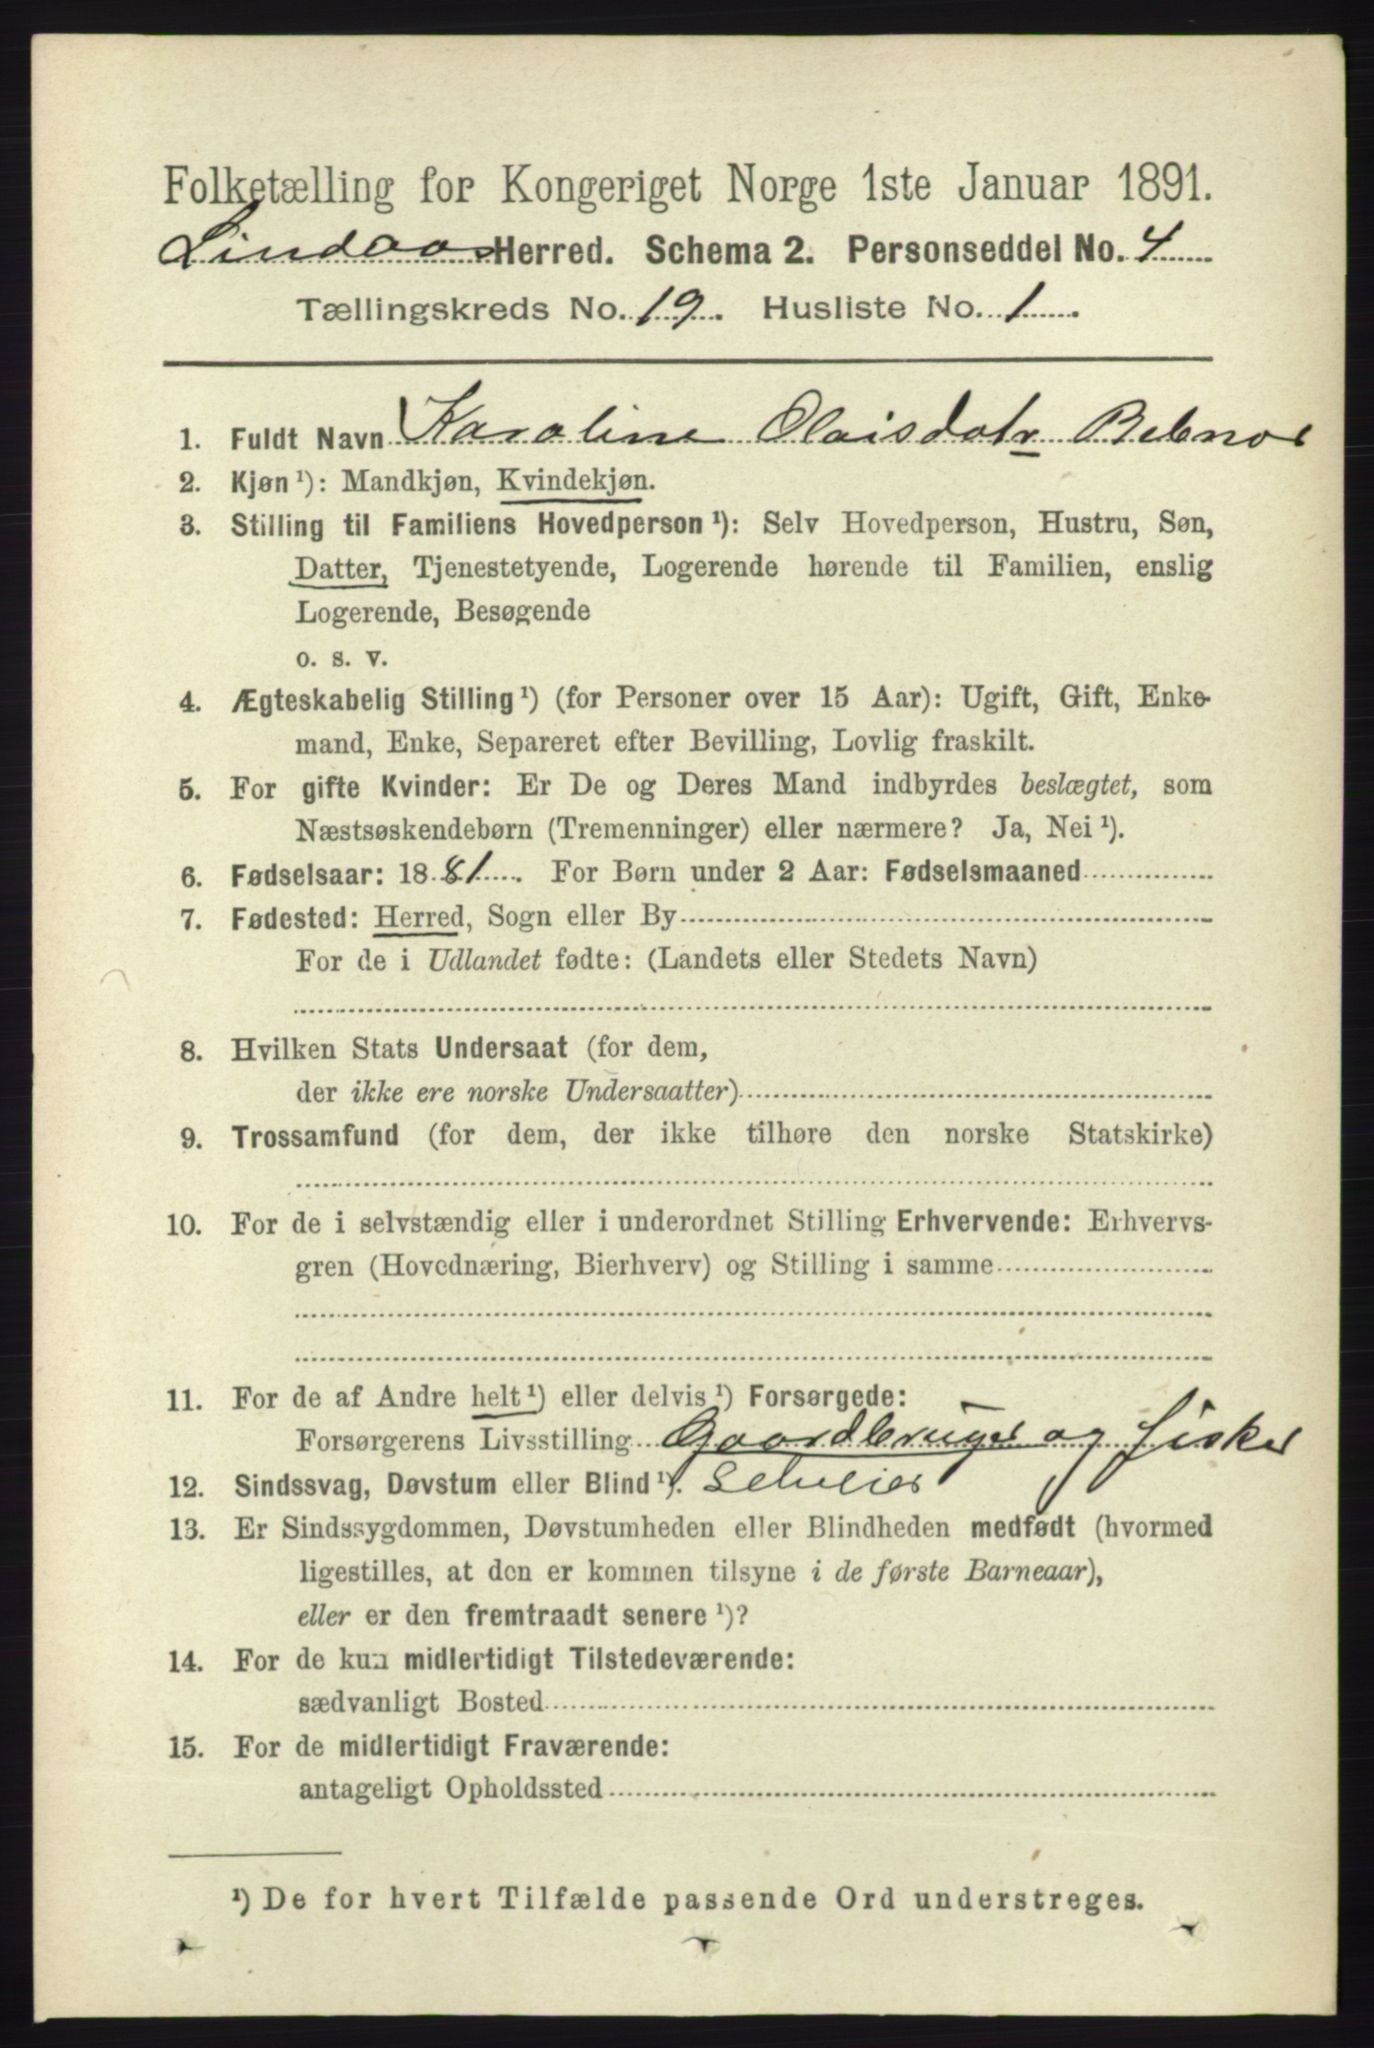 Folketælling for Kongeriget Norge 1ste Januar 1891.
Lindaas Herred. Schema 2. Personseddel No. 4
Tællingskreds No. 19. Husliste No. 1
1. Fuldt Navn Karoline Olaisdatr
2. Kjøn ¹): Mandkjøn, Kvindekjøn.
3. Stilling til Familiens Hovedperson ¹): Selv Hovedperson, Hustru, Søn,
Datter, Tjenestetyende, Logerende hørende til Familien, enslig
Logerende, Besøgende
o. s. v.
4. Ægteskabelig Stilling ¹) (for Personer over 15 Aar): Ugift, Gift, Enke-
mand, Enke, Separeret efter Bevilling, Lovlig fraskilt.
5. For gifte Kvinder: Er De og Deres Mand indbyrdes beslægtet, som
Næstsøskendebørn (Tremenninger) eller nærmere? Ja, Nei ¹).
6. Fødselsaar: 1881. For Børn under 2 Aar: Fødselsmaaned
7. Fødested: Herred, Sogn eller By
For de i Udlandet fødte: (Landets eller Stedets Navn)
8. Hvilken Stats Undersaat (for dem,
der ikke ere norske Undersaatter)
9. Trossamfund (for dem, der ikke tilhøre den norske Statskirke)
10. For de i selvstændig eller i underordnet Stilling Erhvervende: Erhvervs-
gren (Hovednæring, Bierhverv) og Stilling i samme
11. For de af Andre helt ¹) eller delvis ¹) Forsørgede:
Forsørgerens Livsstilling Gaardbruger og Fisker
12. Sindssvag, Døvstum eller Blind ¹). Selveier
13. Er Sindssygdommen, Døvstumheden eller Blindheden medfødt (hvormed
ligestilles, at den er kommen tilsyne i de første Barneaar),
eller er den fremtraadt senere ¹)?
14. For de kun midlertidigt Tilstedeværende:
sædvanligt Bosted
15. For de midlertidigt Fraværende:
antageligt Opholdssted
¹) De for hvert Tilfælde passende Ord understreges.